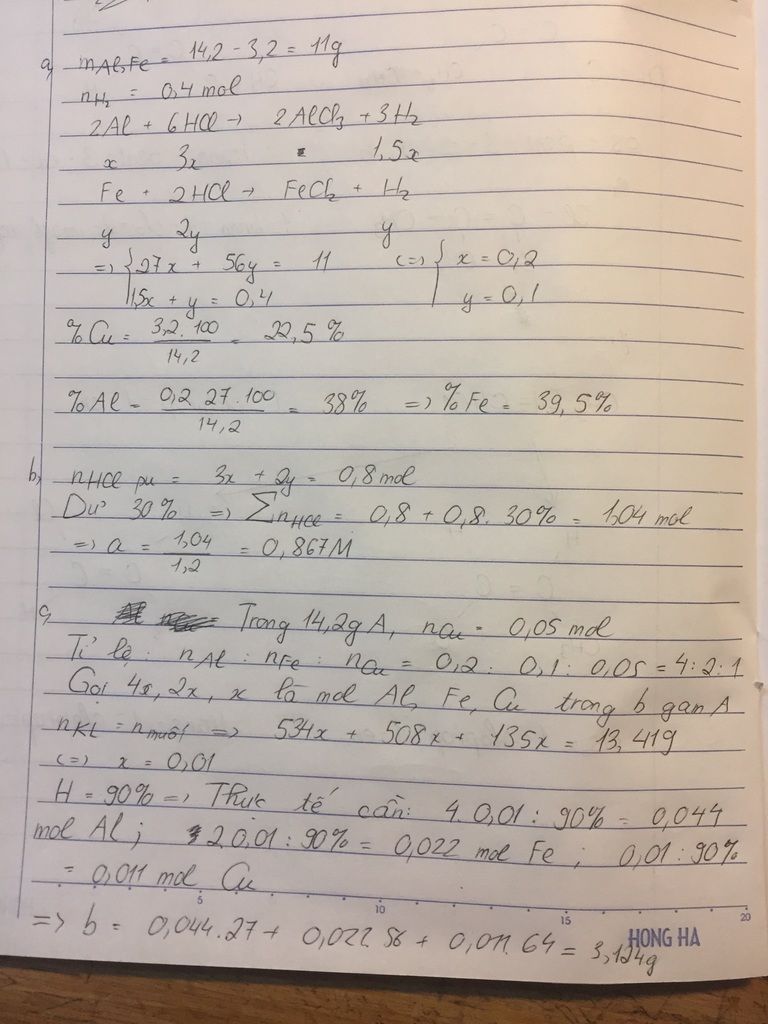 a, mAl,Fe = 14,2 - 3,2 = 11g
nH₂ = 0,4 mol
2Al + 6HCl → 2AlCl₃ + 3H₂
x 3x 1,5x
Fe + 2HCl → FeCl₂ + H₂
y 2y y
=> { 27x + 56y = 11 <=> { x = 0,2
1,5x + y = 0,4 y = 0,1
%Cu = 3,2.100/14,2 = 22,5%
%Al = 0,2.27.100/14,2 = 38% => %Fe = 39,5%
b, nHCl pu = 3x + 2y = 0,8 mol
Dư 30% => ΣnHCl = 0,8 + 0,8.30% = 1,04 mol
=> a = 1,04/1,2 = 0,867M
c, Trong 14,2g A, nCu = 0,05 mol
Tỉ lệ: nAl : nFe : nCu = 0,2 : 0,1 : 0,05 = 4:2:1
Gọi 4x, 2x, x là mol Al, Fe, Cu trong b gam A
nKL = nmuối => 534x + 508x + 135x = 13,419
<=> x = 0,01
H = 90% => Thực tế cần: 4.0,01 : 90% = 0,044
mol Al; 2.0,01 : 90% = 0,022 mol Fe; 0,01 : 90%
= 0,011 mol Cu
5 10 15 20
=> b = 0,044.27 + 0,022.56 + 0,011.64 = 3,124g
HONG HA